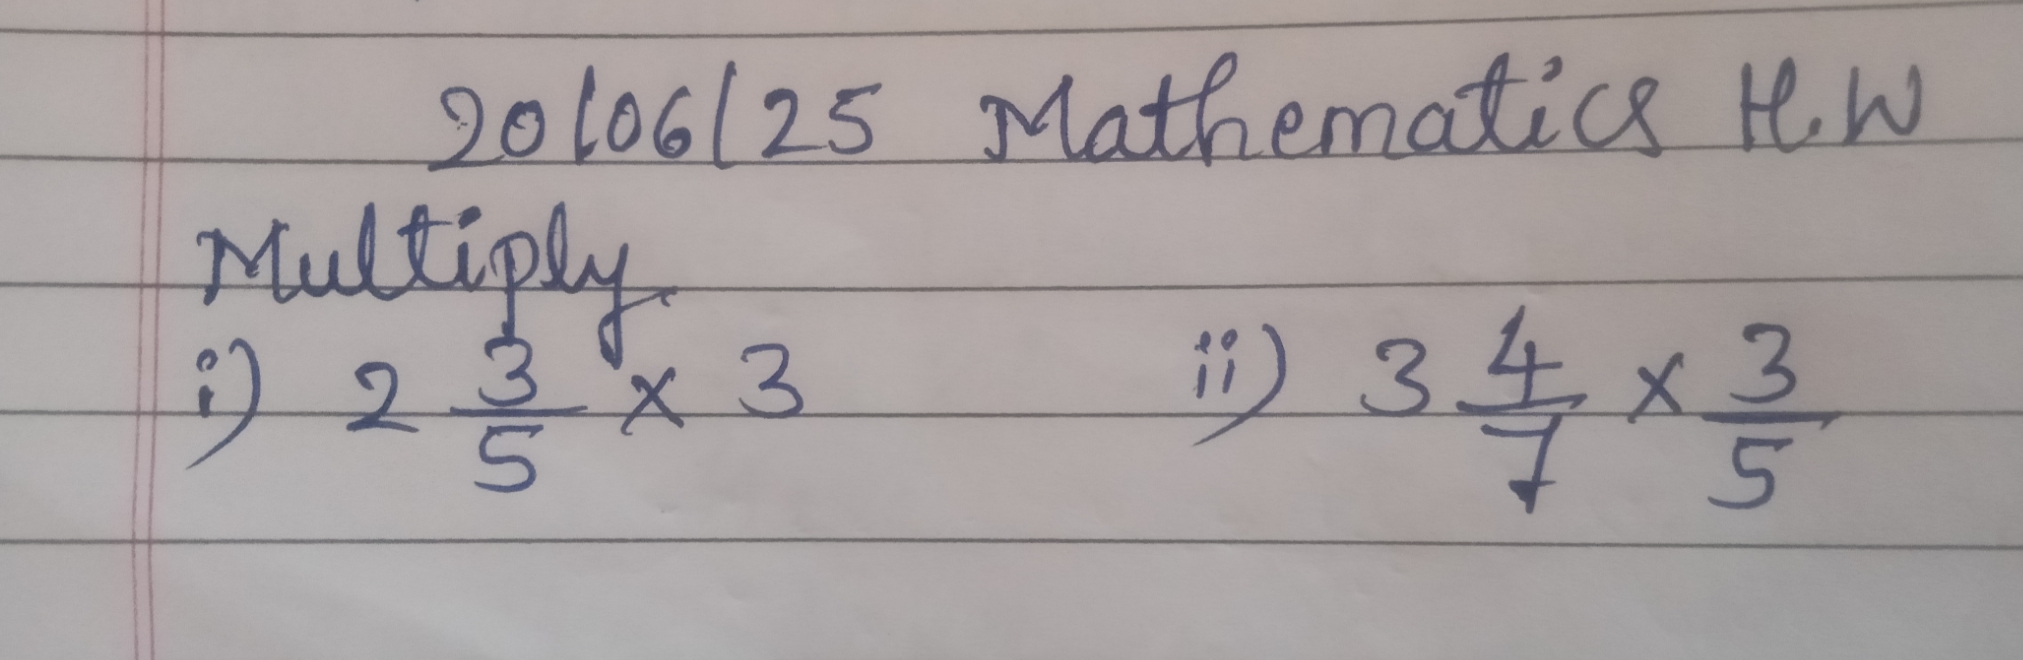 20/06/25 Mathematics H.W
Multiply
i) 2 3/5 x 3 ii) 3 4/7 x 3/5